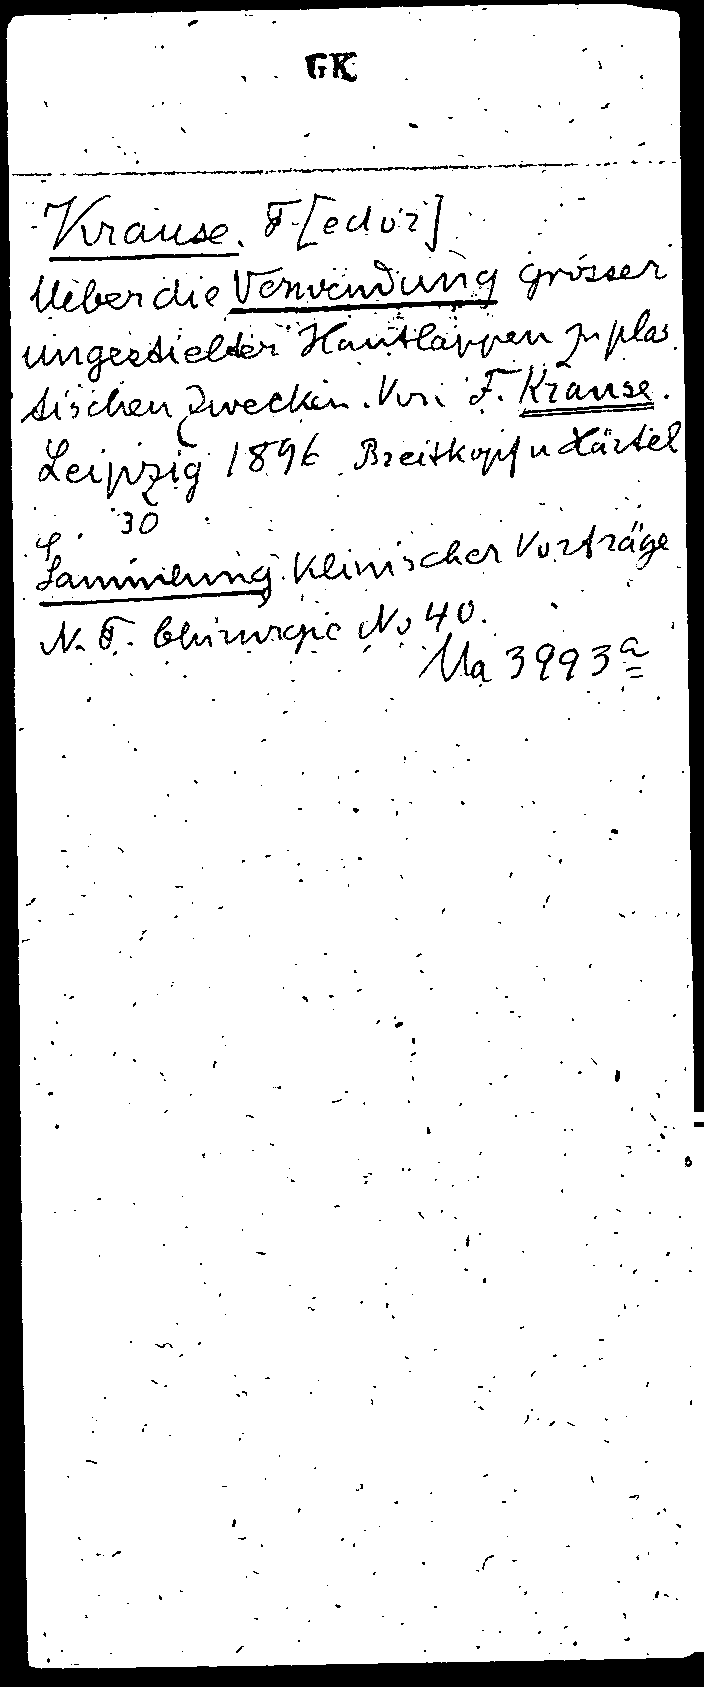 GK
Krause. F[edor]
Ueber die Verwendung grosser
ungestielter Hautlappen zu plas
tischen Zwecken. Von F. Krause.
Leipzig 1896 Breitkopf u Härtel
30
Sammlung klinischer Vorträge
N. F. Chirurgie No 40.
Ua 3993a